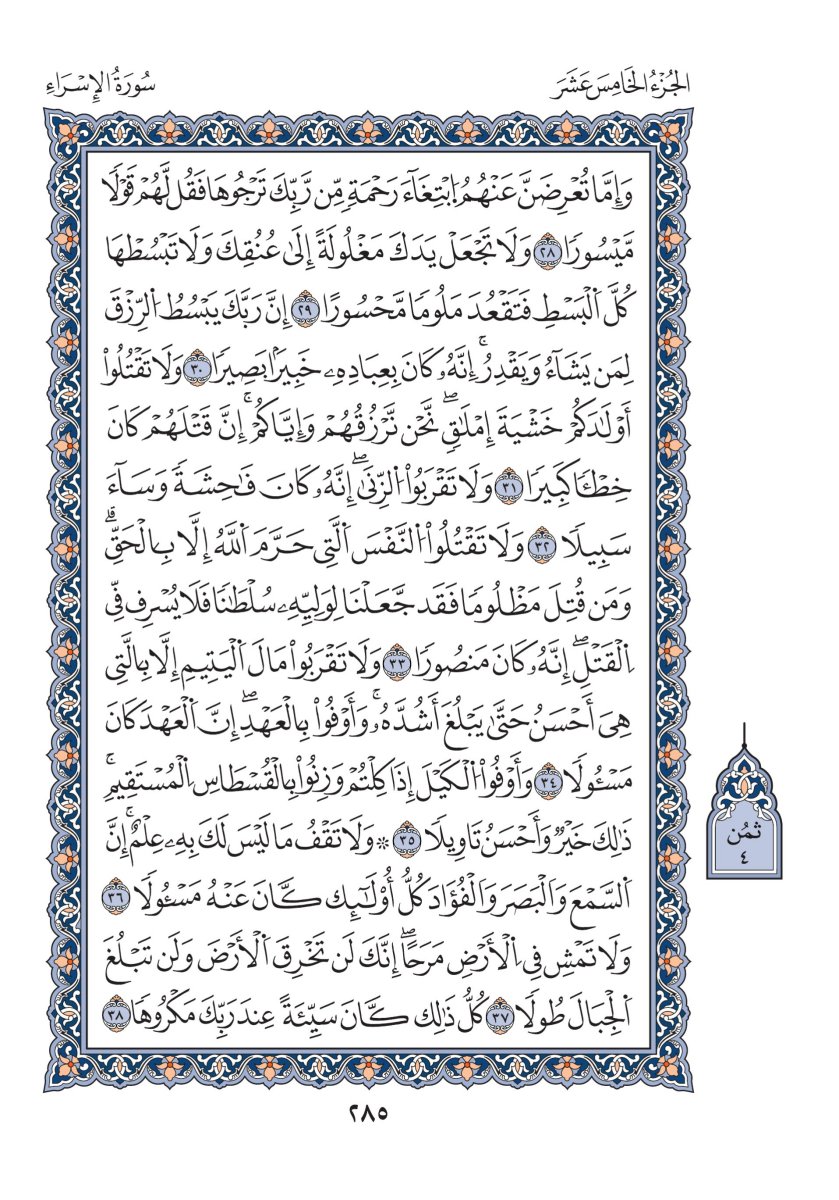 الجُزْءُ الخَامِسَ عَشَرَ
سُورَةُ الإِسْرَاءِ
وَإِمَّا تُعْرِضَنَّ عَنْهُمُ اُبْتِغَآءَ رَحْمَةٍ مِّن رَّبِّكَ تَرْجُوهَا فَقُل لَّهُمْ قَوْلًا
مَّيْسُورًا ٢٨ وَلَا تَجْعَلْ يَدَكَ مَغْلُولَةً إِلَىٰ عُنُقِكَ وَلَا تَبْسُطْهَا
كُلَّ اَلْبَسْطِ فَتَقْعُدَ مَلُومًا مَّحْسُورًا ٢٩ إِنَّ رَبَّكَ يَبْسُطُ اُلرِّزْقَ
لِمَن يَشَآءُ وَيَقْدِرُۚ إِنَّهُۥ كَانَ بِعِبَادِهِۦ خَبِيرًۢا بَصِيرًا ٣٠ وَلَا تَقْتُلُوٓاْ
أَوْلَٰدَكُمْ خَشْيَةَ إِمْلَٰقٍۖ نَّحْن نَّرْزُقُهُمْ وَإِيَّاكُمْۚ إِنَّ قَتْلَهُمْ كَانَ
خِطْـًٔا كَبِيرًا ٣١ وَلَا تَقْرَبُواْ اُلزِّنَىٰۖ إِنَّهُۥ كَانَ فَٰحِشَةً وَسَآءَ
سَبِيلًا ٣٢ وَلَا تَقْتُلُواْ اُلنَّفْسَ اَلَّتِي حَرَّمَ اَللَّهُ إِلَّا بِالْحَقِّۗ
وَمَن قُتِلَ مَظْلُومًا فَقَد جَّعَلْنَا لِوَلِيِّهِۦ سُلْطَٰنًا فَلَا يُسْرِف فِّي
اِلْقَتْلِۖ إِنَّهُۥ كَانَ مَنصُورًا ٣٣ وَلَا تَقْرَبُواْ مَالَ اَلْيَتِيمِ إِلَّا بِالَّتِي
هِيَ أَحْسَنُ حَتَّىٰ يَبْلُغَ أَشُدَّهُۥۚ وَأَوْفُواْ بِالْعَهْدِۖ إِنَّ اَلْعَهْدَ كَانَ
مَسْـُٔولًا ٣٤ وَأَوْفُواْ اُلْكَيْلَ إِذَا كِلْتُمْ وَزِنُواْ بِالْقُسْطَاسِ اِلْمُسْتَقِيمِۚ
ذَٰلِكَ خَيْرٌ وَأَحْسَنُ تَاوِيلًا ٣٥ ۞ وَلَا تَقْفُ مَا لَيْسَ لَكَ بِهِۦ عِلْمٌۚ إِنَّ
اَلسَّمْعَ وَالْبَصَرَ وَالْفُؤَادَ كُلُّ أُوْلَٰٓئِك كَّانَ عَنْهُ مَسْـُٔولًا ٣٦
وَلَا تَمْشِ فِي اِلْأَرْضِ مَرَحًاۖ إِنَّكَ لَن تَخْرِقَ اَلْأَرْضَ وَلَن تَبْلُغَ
اَلْجِبَالَ طُولًا ٣٧ كُلُّ ذَٰلِك كَّانَ سَيِّئَةً عِندَ رَبِّكَ مَكْرُوهًا ٣٨
ثُمُن
٤
٢٨٥